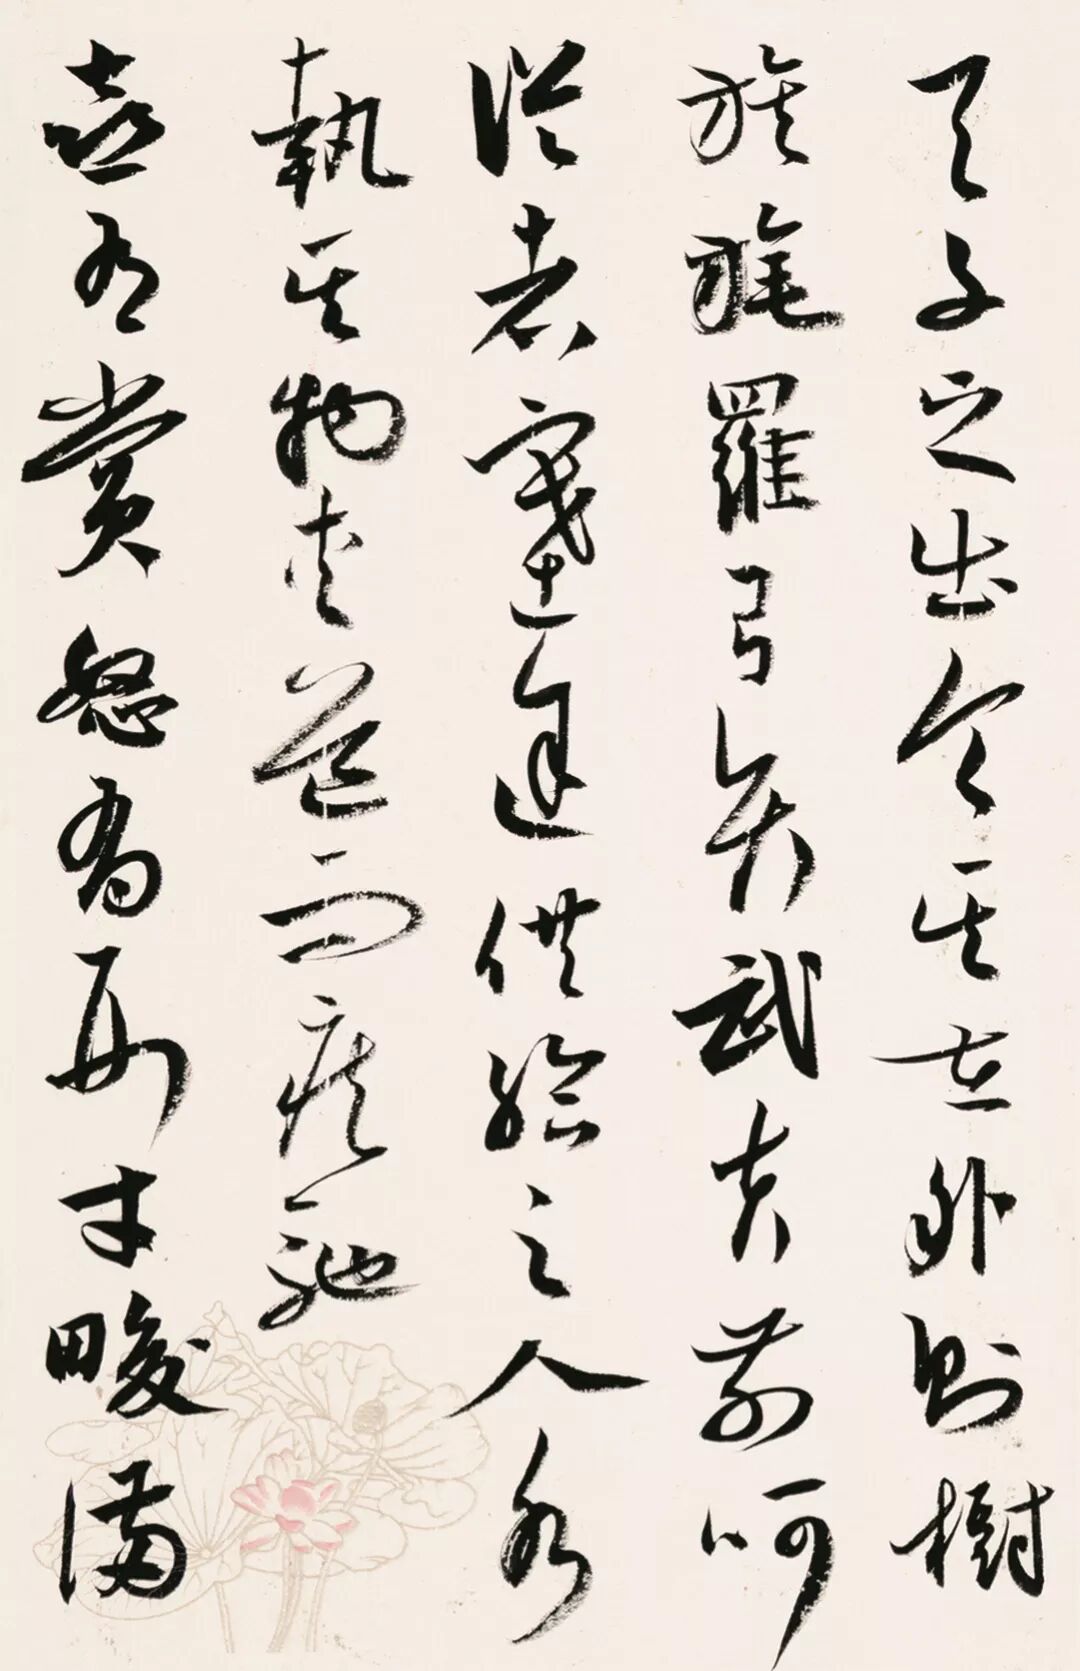 天子之出令其在外則樹
旗旄羅弓矢武夫前呵
從者塞途供給之人各
執其物夾道而疾馳
喜有賞怒有刑才畯滿